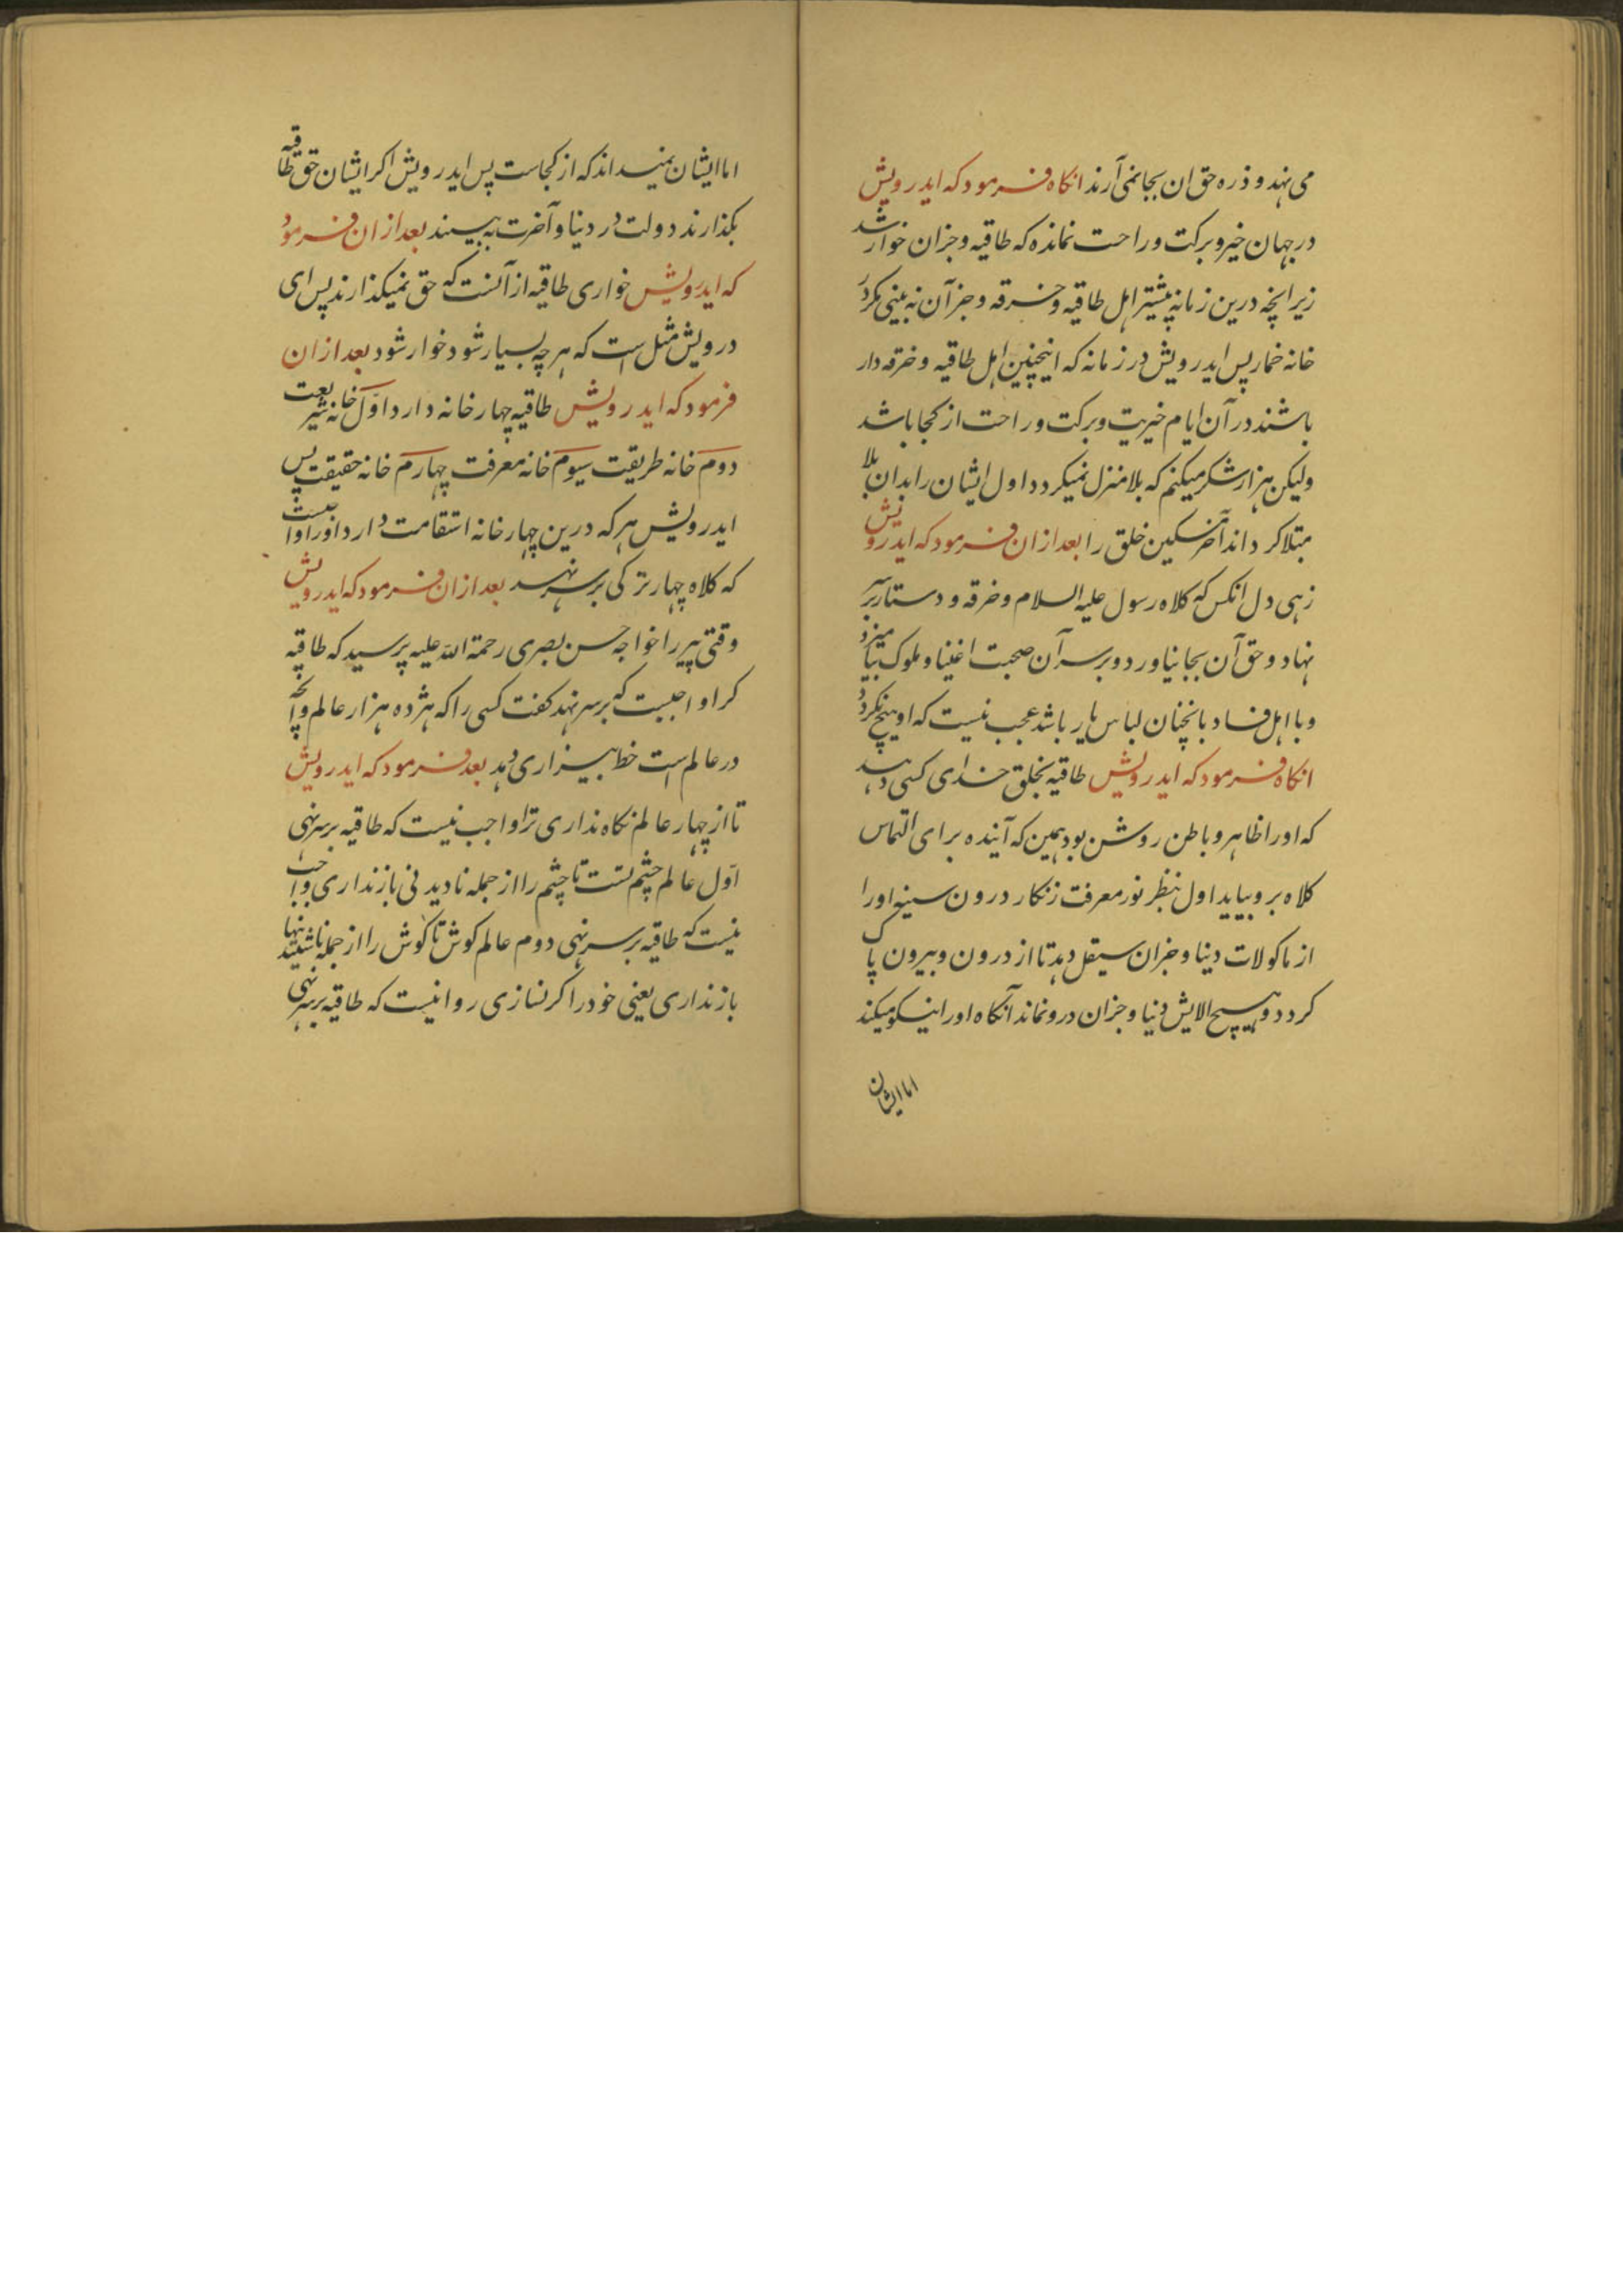 می نهد و ذره حق ان بجا نمی آرند انکاه فرمود که ایدرویش
در جهان خیر و برکت و راحت نمانده که طاقیه و جزان خوار شد
زیرانچه درین زمانه بیشتر اهل طاقیه و خرقه و جز آن نه بینی مکر در
خانه خمار پس ایدرویش در زمانه که اینچنین اهل طاقیه و خرقه دار
باشند در آن ایام خیریت و برکت و راحت از کجا باشد
ولیکن هزار شکر میکنم که بلا منزل نمیکردد اول ایشان را بدان بلا
مبتلا کرداند آخر مسکین خلق را بعد ازان فرمود که ایدرویش
زهی دل انکس که کلاه رسول علیه السلام و خرقه و دستار بر سر
نهاد و حق آن بجا نیاورد و بر سر آن صحبت اغنیا و ملوک
و با اهل فساد بانچنان لباس یار باشد عجب نیست که او هیچ نکردد
انکاه فرمود که ایدرویش طاقیه بخلق خدای کسی دهد
که او را ظاهر و باطن روشن بود همین که آینده برای التماس
کلاه برو بیاید اول بنظر نور معرفت زنکار درون سینه او را
از ماکولات دنیا و جزان سیقل دهد تا از درون و بیرون پاک
کردد و هیچ الایش دنیا و جزان درو نماند آنکاه او را نیکو میکند
اما ایشان
اما ایشان نمیداند که از کجاست پس ایدرویش اکر ایشان حق طاقیه
بکذارند دولت در دنیا و آخرت به بیسند بعد ازان فرمود
که ایدرویش خواری طاقیه از آنست که حق نمیکذارند پس ای
درویش مثل است که هر چه بسیار شود خوار شود بعد ازان
فرمود که ایدرویش طاقیه چهار خانه دارد اول خانه شریعت
دوم خانه طریقت سیوم خانه معرفت چهارم خانه حقیقت پس
ایدرویش هر که درین چهار خانه استقامت دارد او را واجبست
که کلاه چهار ترکی بر سر نهد بعد ازان فرمود که ایدرویش
وقتی پیر را خواجه حسن بصری رحمة الله علیه پرسید که طاقیه
کرا واجبست که بر سر نهد کفت کسی را که هژده هزار عالم و آنچه
در عالم است خط بیزاری دهد بعد فرمود که ایدرویش
تا از چهار عالم نکاه نداری ترا واجب نیست که طاقیه بر سر نهی
اول عالم چشم تست تا چشم را از جمله نادیدنی باز نداری واجب
نیست که طاقیه بر سر نهی دوم عالم کوش تا کوش را از جمله ناشنیدنیها
باز نداری یعنی خود را کر نسازی روا نیست که طاقیه بر سر نهی